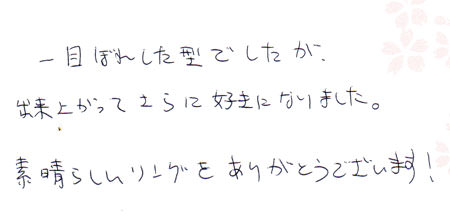 一目ぼれした型でしたが、
出来上がってさらに好きになりました。
素晴らしいリングをありがとうございます！